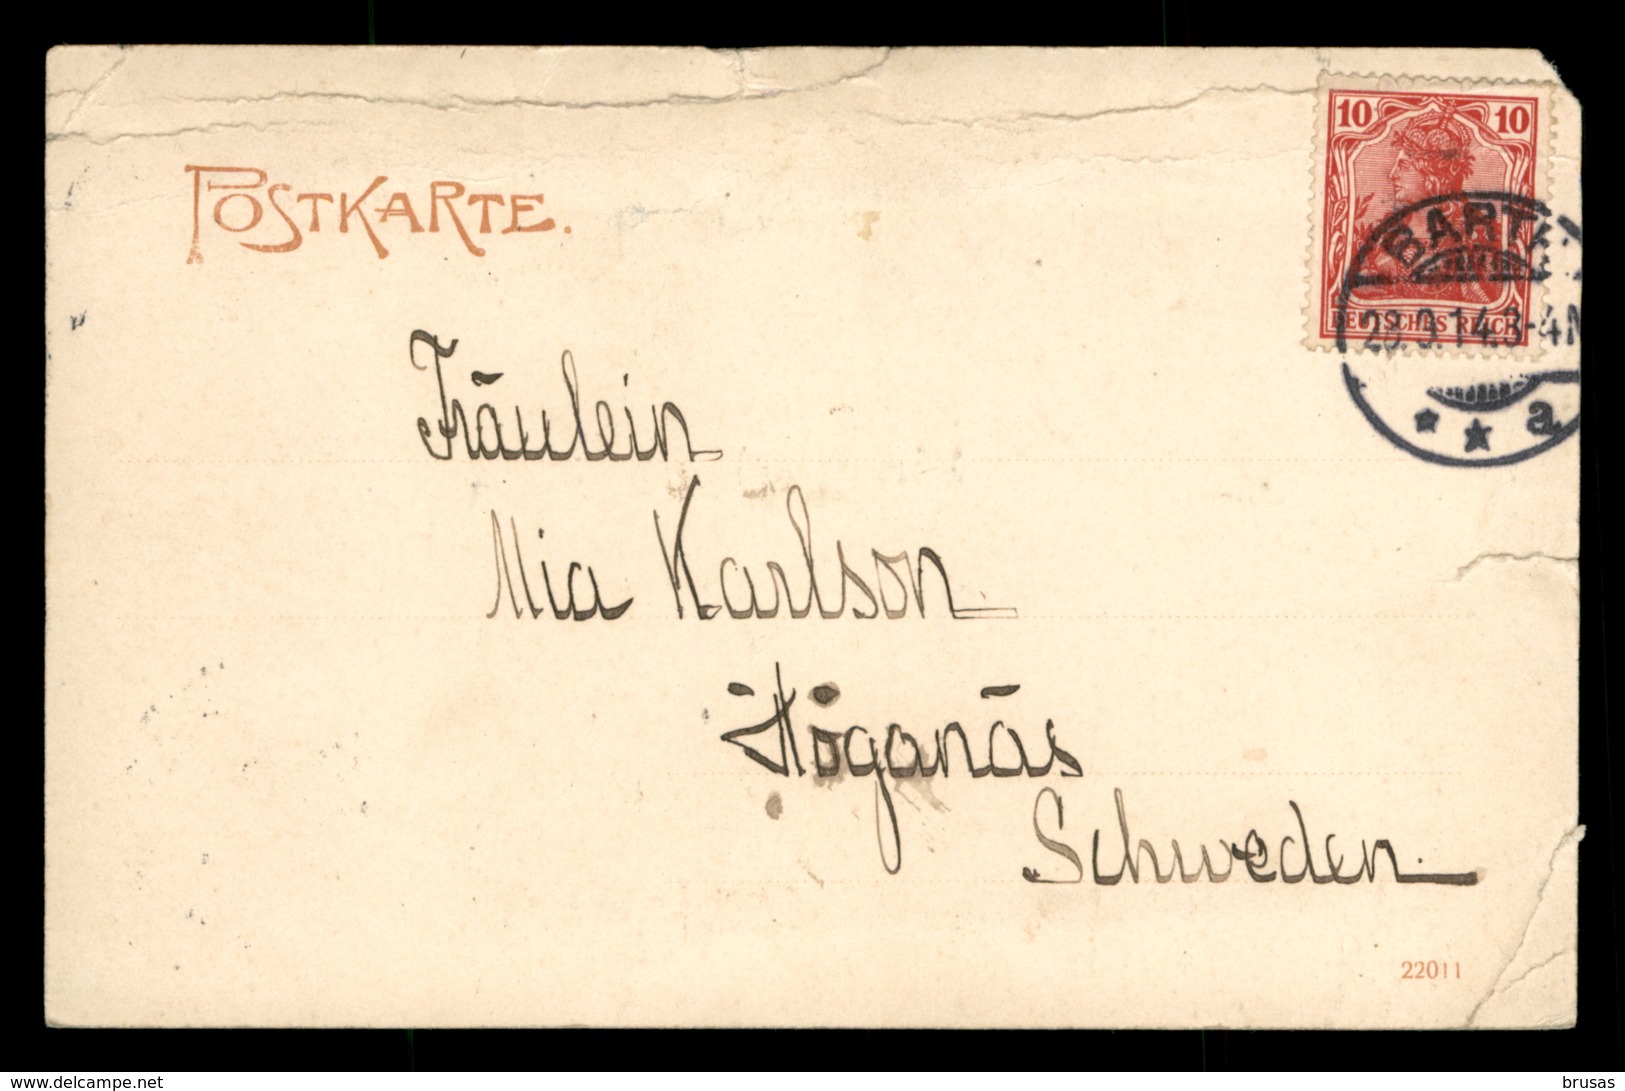 POSTKARTE.
10 10
DEUTSCHES REICH
BARTH
3-4N
a
Fräulein
Mia Karlson.
Höganäs
Schweden.
22011
www.delcampe.net
brusas